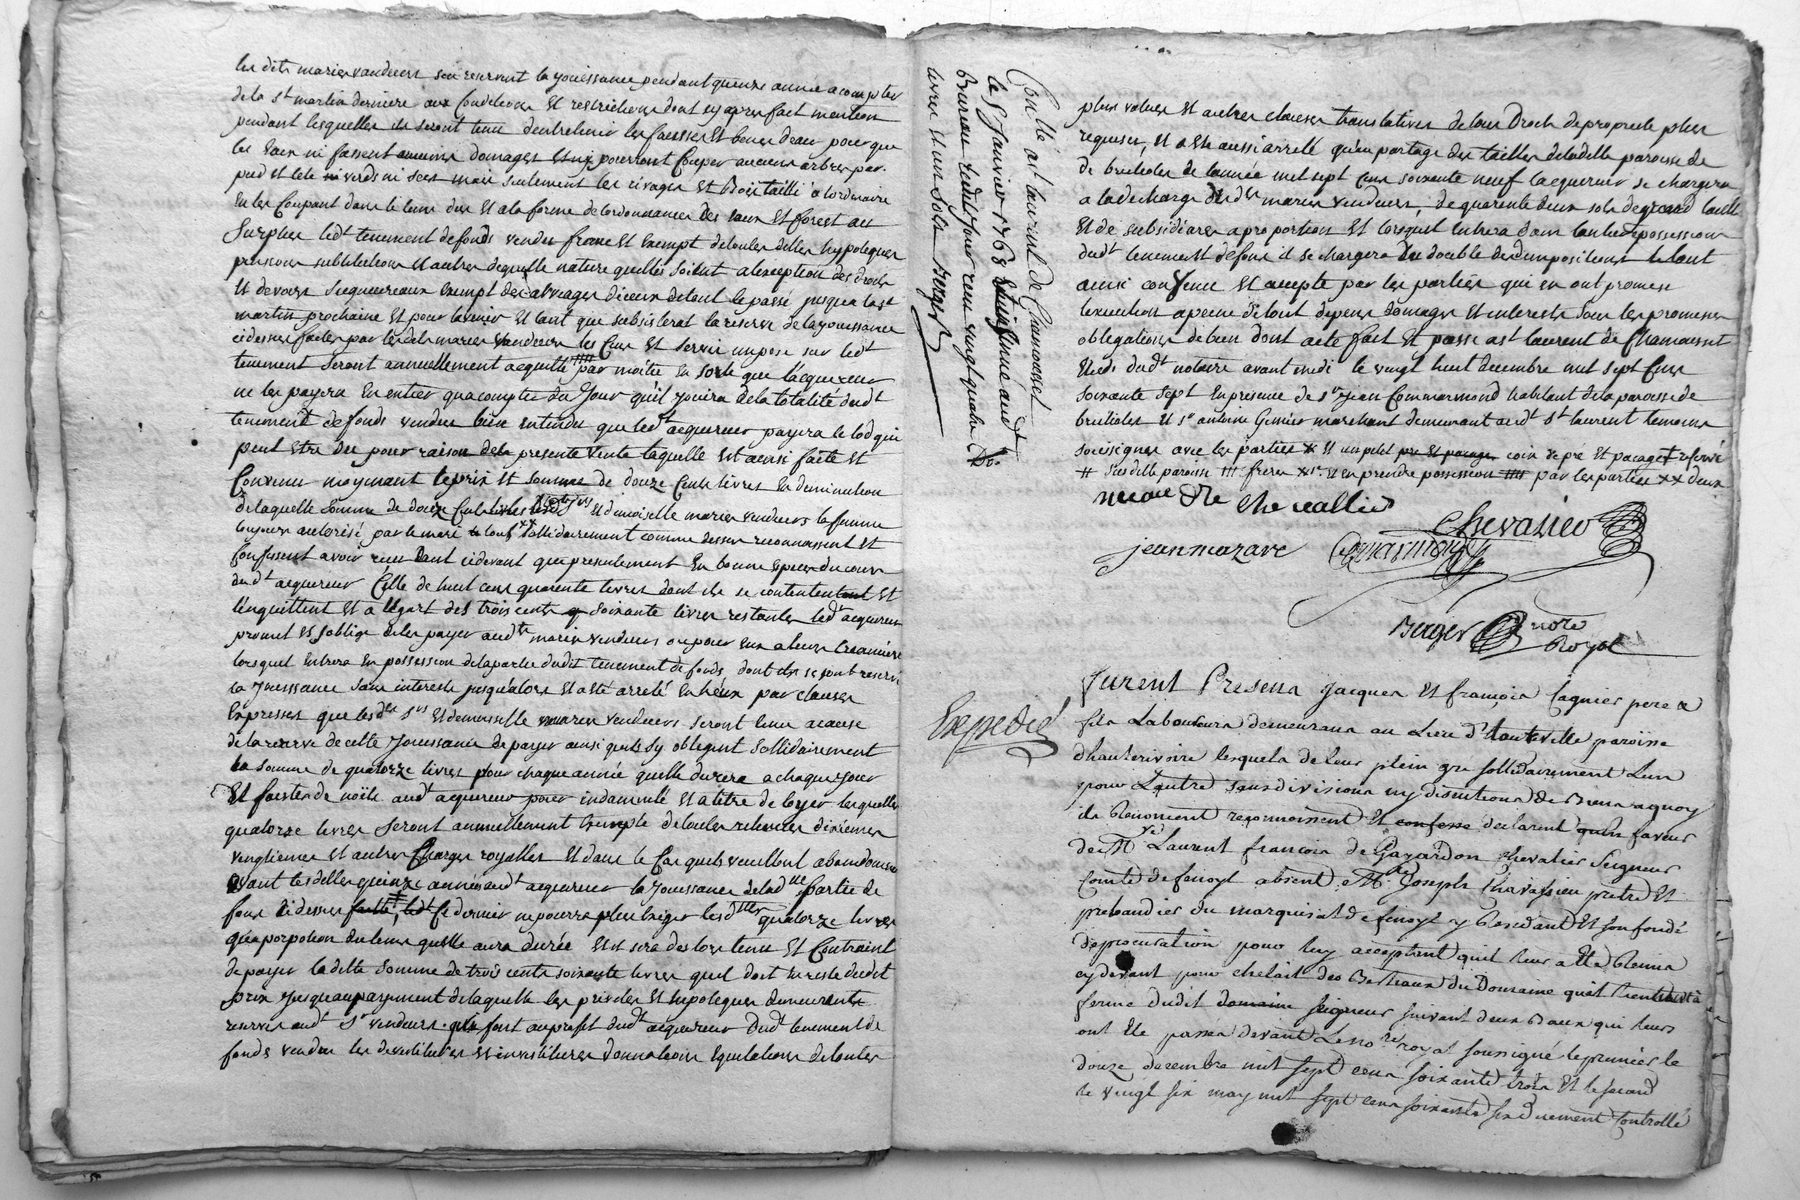 les dits mariés vandeurs sen reservent la jouissance pendant quinze année a compter
de la st martin derniere aux Conditions Et restrictions dont cy apres fait mention
pendant lesquelles ils seront tenu dentretenir les fausses Et beues deau pour que
les eaux ni fassent aucuns domages et ny pourront Couper aucuns arbres par
pied et tete ni verds ni secs mais seulement les rivages Et Bois taillis a lordinaire
En les Coupant dans le tems due Et a la forme de lordonnances Des eaux Et forest au
Surplus led.t tenement de fonds vendus franc Et Exempt de toutes dettes hypoteques
pensions substitutions Et autres de quelle nature quelles soient a lexception des droits
Et devoirs Seigneureaux Exempt des arrerages diceux de tout le passé jusqua la st
martin prochaine Et pour lavenir Et tant que subsisterat la reserve de la jouissance
cidessus faites par les dits mariés Vandeurs les Cens Et Servis imposé sur led.t
tenement seront annuellement acquitté par moitie En sorte que lacquereur
ne les payera En entier qua compter du Jour quil jouira de la totalité dud.t
tenement de fonds vendus bien entendu que led.t acquereur payera le lod qui
peut Etre Due pour raison de la presente vente laquelle Est ainsi faite Et
Convenue moyenant le prix Et somme de douze Cents livres En deminution
de laquelle somme de douze Cents livres lesdts srs Et demoiselle mariés vendeurs la femme
toujours autorisé par le mari & tous xx sollidairement comme dessus reconnaissent Et
Confessent avoir reçu tant cidevant que presentement En bonne Especes du cours
dud.t acquereur Celle de huit cens quarente livres dont ils se contentent Et
lenquittent Et a legart des trois cents soixante livres restantes led.t acquereur
promet Et soblige de les payer aud.ts mariés vendeurs ou pour eux a leurs Creanciers
lorsquil Entrera En possession de la partie dudit tenement de fonds dont ils se sont reservé
la Jouissance sans interests jusqualors Et a été arreté En heux par clauses
Expresses que lesd.ts srs Et demoiselle mariés vendeurs seront tenu acause
de la reserve de cette Jouissance de payer ainsi quils sy obligent Sollidairement
la somme de quatorze livres pour chaque année quelle durera a chaque jour
Et festes de noëls aud.t acquereur pour indamnité Et a titre de loyer lesquelles
quatorze livres seront annuellement Exempte de toutes retenues dixiemes
vingtiemes et autres Charges royalles Et dans le Cas quils veuillent abandonner
avant lesdittes quinze années aud.t acquereur la jouissance de lad.tte partie de
fons cidessus ce dernier ne pourra plus Exiger lesd.ttes quatorze livres
qu'a porpotion du tems quelle aura durée Et il sera des lors tenu Et Contraint
de payer la ditte somme de trois cents soixante livres quil doit En reste dudit
prix jusquau payement de laquelle les privileges Et hipoteques demeurent
reservés aud.t sr vendeurs qui font au profit dud.t acquereur Dud.t tenement de
fonds vendu les devestitures Et investitures donnations Equitations de toutes
Conttlé a st laurent de Chamousset
le 8 Janvier 1768 et insinué aud.t
Bureau ledit jour reçu vingt quatre
livres et un sols Berger
plus values Et autres clauses translatives de tous Droits de proprieté plus
requises, Et a Eté aussi arreté qu'au partage des tailles de ladette paroisse de
de brullioles de lannée mil sept Cens soixante neuf lacquereur se chargera
a la decharge des dts mariés vendeurs, de quarente deux sols de grand taille
Et de subsidiaires a proportion Et lorsquil Entrera dans lentiere possession
dud.t tenement de fons il se chargera Du double desd impositions le tout
ainsi convenu Et accepté par les parties qui En ont promise
lexecution a peine de tout depens domages Et interests sous les promesses
obligations de bien dont acte fait Et passé a st laurent de Chamousset
Etude dud.t notaire avant midi le vingt huit decembre mil sept Cens
soixante sept En presence de sr jean Commarmond habitant de la paroisse de
brullioles Et sr antoine Grenier marchant demeurant aud.t st laurent temoins
soussignés avec les parties x Et un petit coin de pré Et pacaget reservé
# Susditte paroisse !!! freres Et En prendre possession par les parties xx deux
nicou dte chevallier
Chevalier
jeanmazard
Comarmond
Berger note
Royal
Expedié
Furent Presens Jacques Et françois Cagnier pere &
fils Laboureurs demeurans au Lieu d'hauteville paroisse
d'hauterivoire lesquels de leur plein gre sollidairement L'un
pour L'autre sans division ny discution de Biens a quoy
ils Renoncent reconnoissent Et confesse declarent quils faveur
de M.re Laurent francois de Gayardon chevalier Seigneur
Comte de fenoyl absent M.re Joseph Chavassieu pretre Et
prebandier du marquisat de fenoyl y Residant Et son fondé
de procuration pour luy acceptant quil leur a Eté Remis
cy devant pour chetail des Bestiaux du Domaine quil tient a
ferme dudit domaine seigneur suivant deux Baux qui leurs
ont Ete passés devant Le no.re royal soussigné le premier le
douze decembre mil sept cens soixante trois Et le second
le vingt six may mil sept cens soixante six duement Controllé